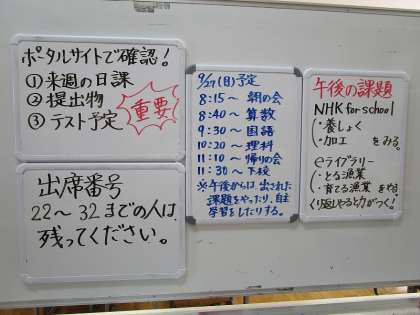 ポータルサイトで確認！
①来週の日課
②提出物
③テスト予定
重要
出席番号
22～32までの人は、
残ってください。
9/27(月)予定
8:15～ 朝の会
8:40～ 算数
9:30～ 国語
10:20～ 理科
11:10～ 帰りの会
11:30～ 下校
※午後からは、出された
課題をやったり、自主
学習をしたりする。
午後の課題
NHK for school
・養しょく
・加工 をみる。
eライブラリー
・とる漁業
・育てる漁業 をやる
くり返しやると力がつく！